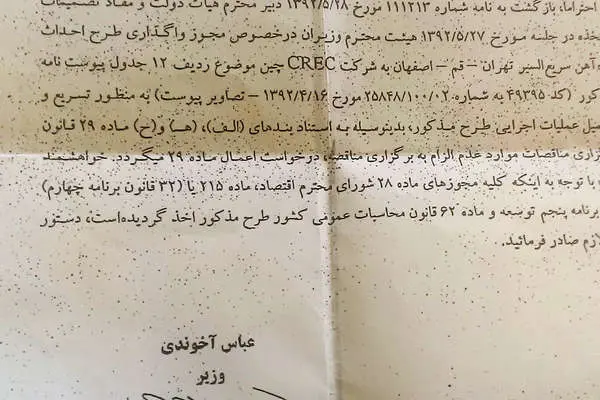 احتراما، بازگشت به نامه شماره ۱۱۱۲۱۳ مورخ ۱۳۹۲/۵/۲۸ دبیر محترم هیات دولت و مفاد تصمیمات
تخذه در جلسه مورخ ۱۳۹۲/۵/۲۷ هیئت محترم وزیران درخصوص مجوز واگذاری طرح احداث
ه‌آهن سریع‌السیر تهران – قم – اصفهان به شرکت CREC چین موضوع ردیف ۱۲ جدول پیوست نامه
کور (کد ۴۹۳۹۵ به شماره ۲۵۸۴۸/۱۰۰/۰۲ مورخ ۱۳۹۲/۴/۱۶ – تصاویر پیوست) به منظور تسریع و
میل عملیات اجرایی طرح مذکور، بدینوسیله به استناد بندهای (الف)، (هـ) و(ح) ماده ۲۹ قانون
گزاری مناقصات موارد عدم الزام به برگزاری مناقصه، درخواست اعمال ماده ۲۹ میگردد. خواهشمند
ه با توجه به اینکه کلیه مجوزهای ماده ۲۸ شورای محترم اقتصاد، ماده ۲۱۵ یا (۳۲ قانون برنامه چهارم)
برنامه پنجم توسعه و ماده ۶۲ قانون محاسبات عمومی کشور طرح مذکور اخذ گردیده‌است، دستور
لازم صادر فرمائید.
عباس آخوندی
وزیر